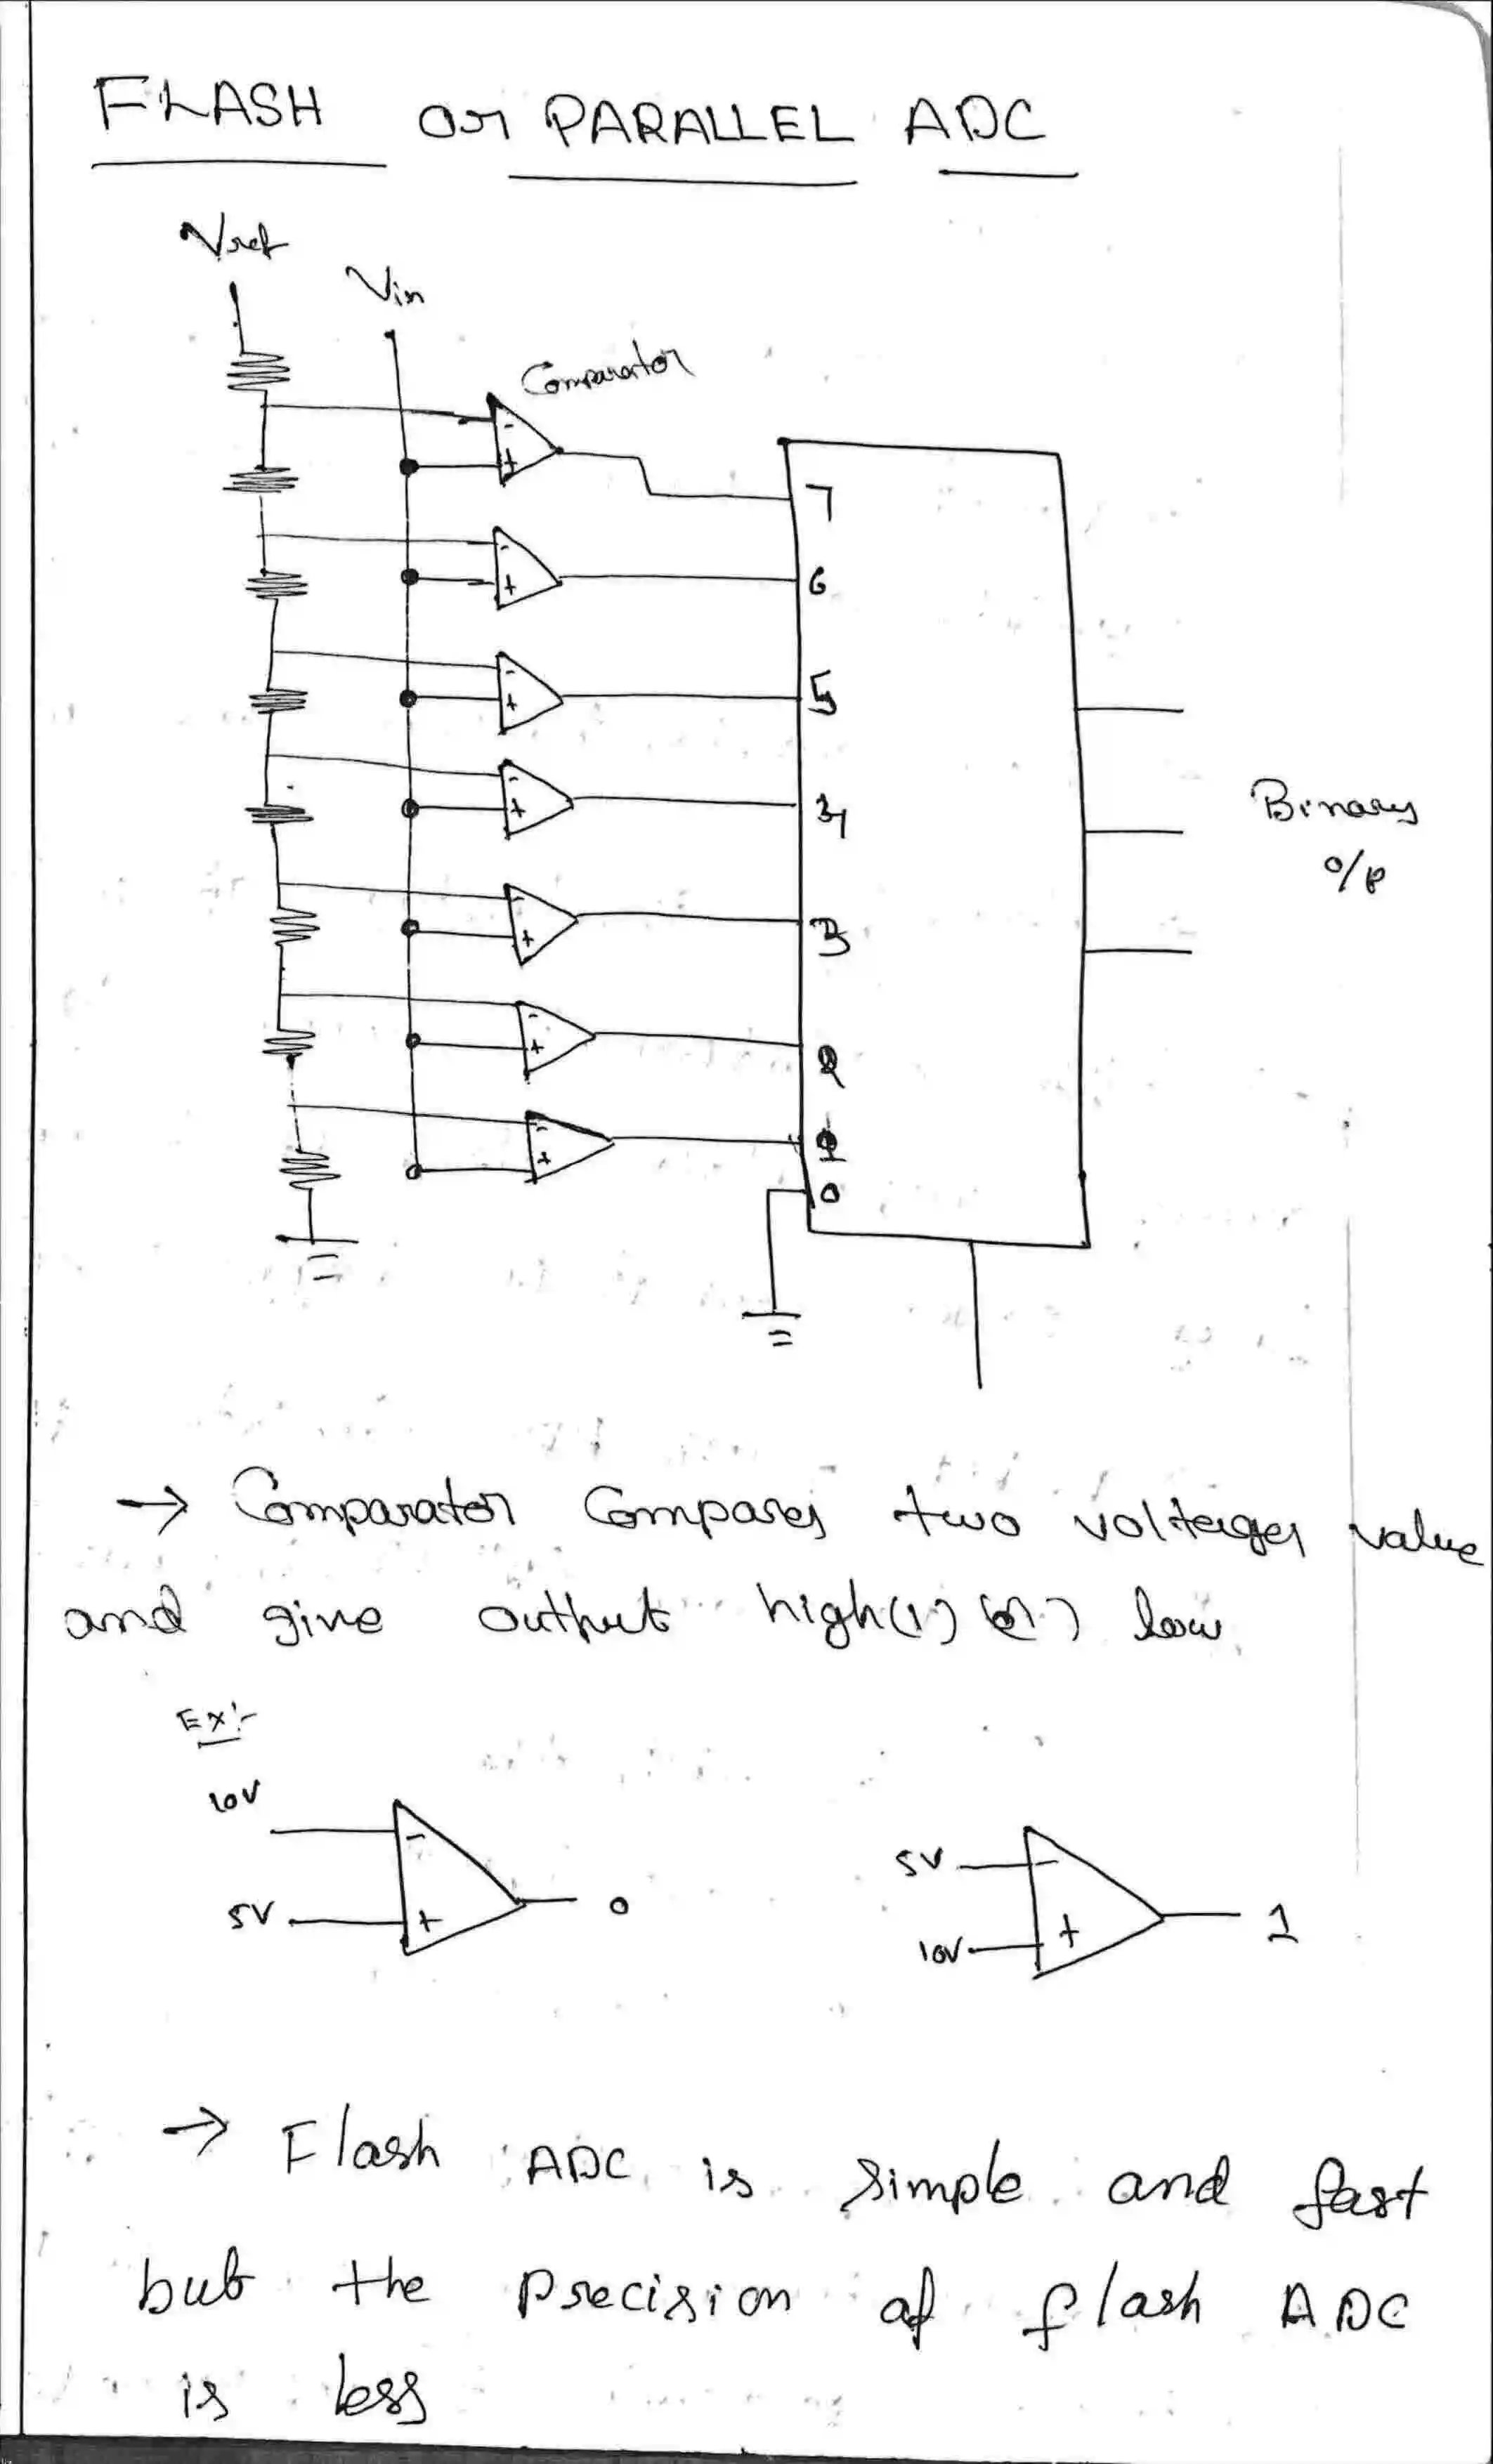 FLASH or PARALLEL ADC
Vref
Vin
Comparator
- +
7
- +
6
- +
5
- +
4
- +
3
- +
2
- +
1
0
Binary
o/p
→ Comparator Compares two voltages value
and give output high(1) (or) low
Ex:-
10V - 5V + 0
5V - 10V + 1
→ Flash ADC is simple and fast
but the precision of flash ADC
is less